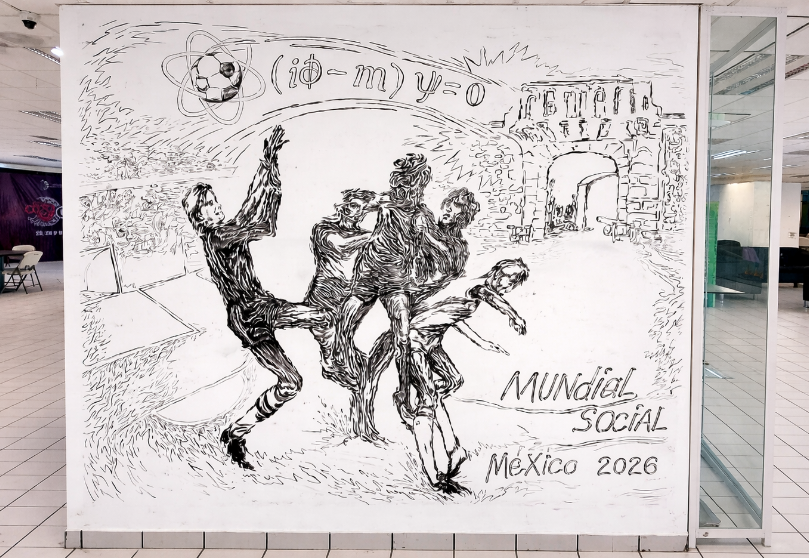 (i∂̸ - m) ψ = 0
MUNdiaL
SOCiAL
MéXico 2026